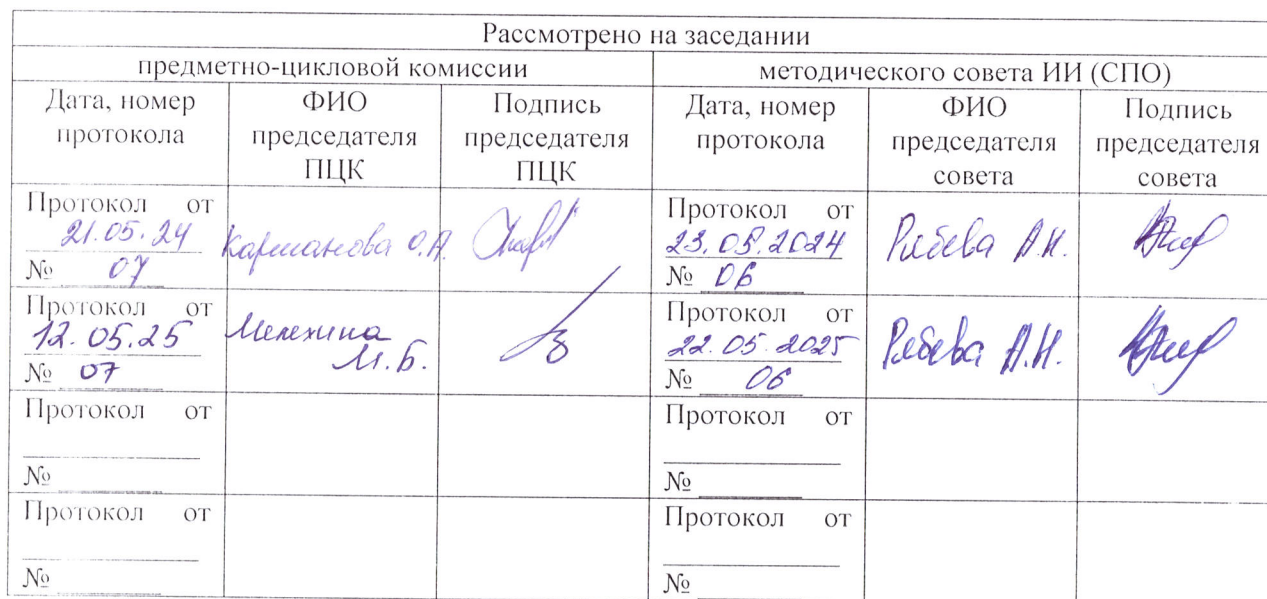 Рассмотрено на заседании
предметно-цикловой комиссии методического совета ИИ (СПО)
Дата, номер протокола ФИО председателя ПЦК Подпись председателя ПЦК Дата, номер протокола ФИО председателя совета Подпись председателя совета
Протокол от
21.05.24
№ 07
Карманова О.А.
Протокол от
23.05.2024
№ 06
А.Н.
Протокол от
12.05.25
№ 07
Мелехина
М.Б.
Протокол от
22.05.2025
№ 06
А.Н.
Протокол от
№
Протокол от
№
Протокол от
№
Протокол от
№